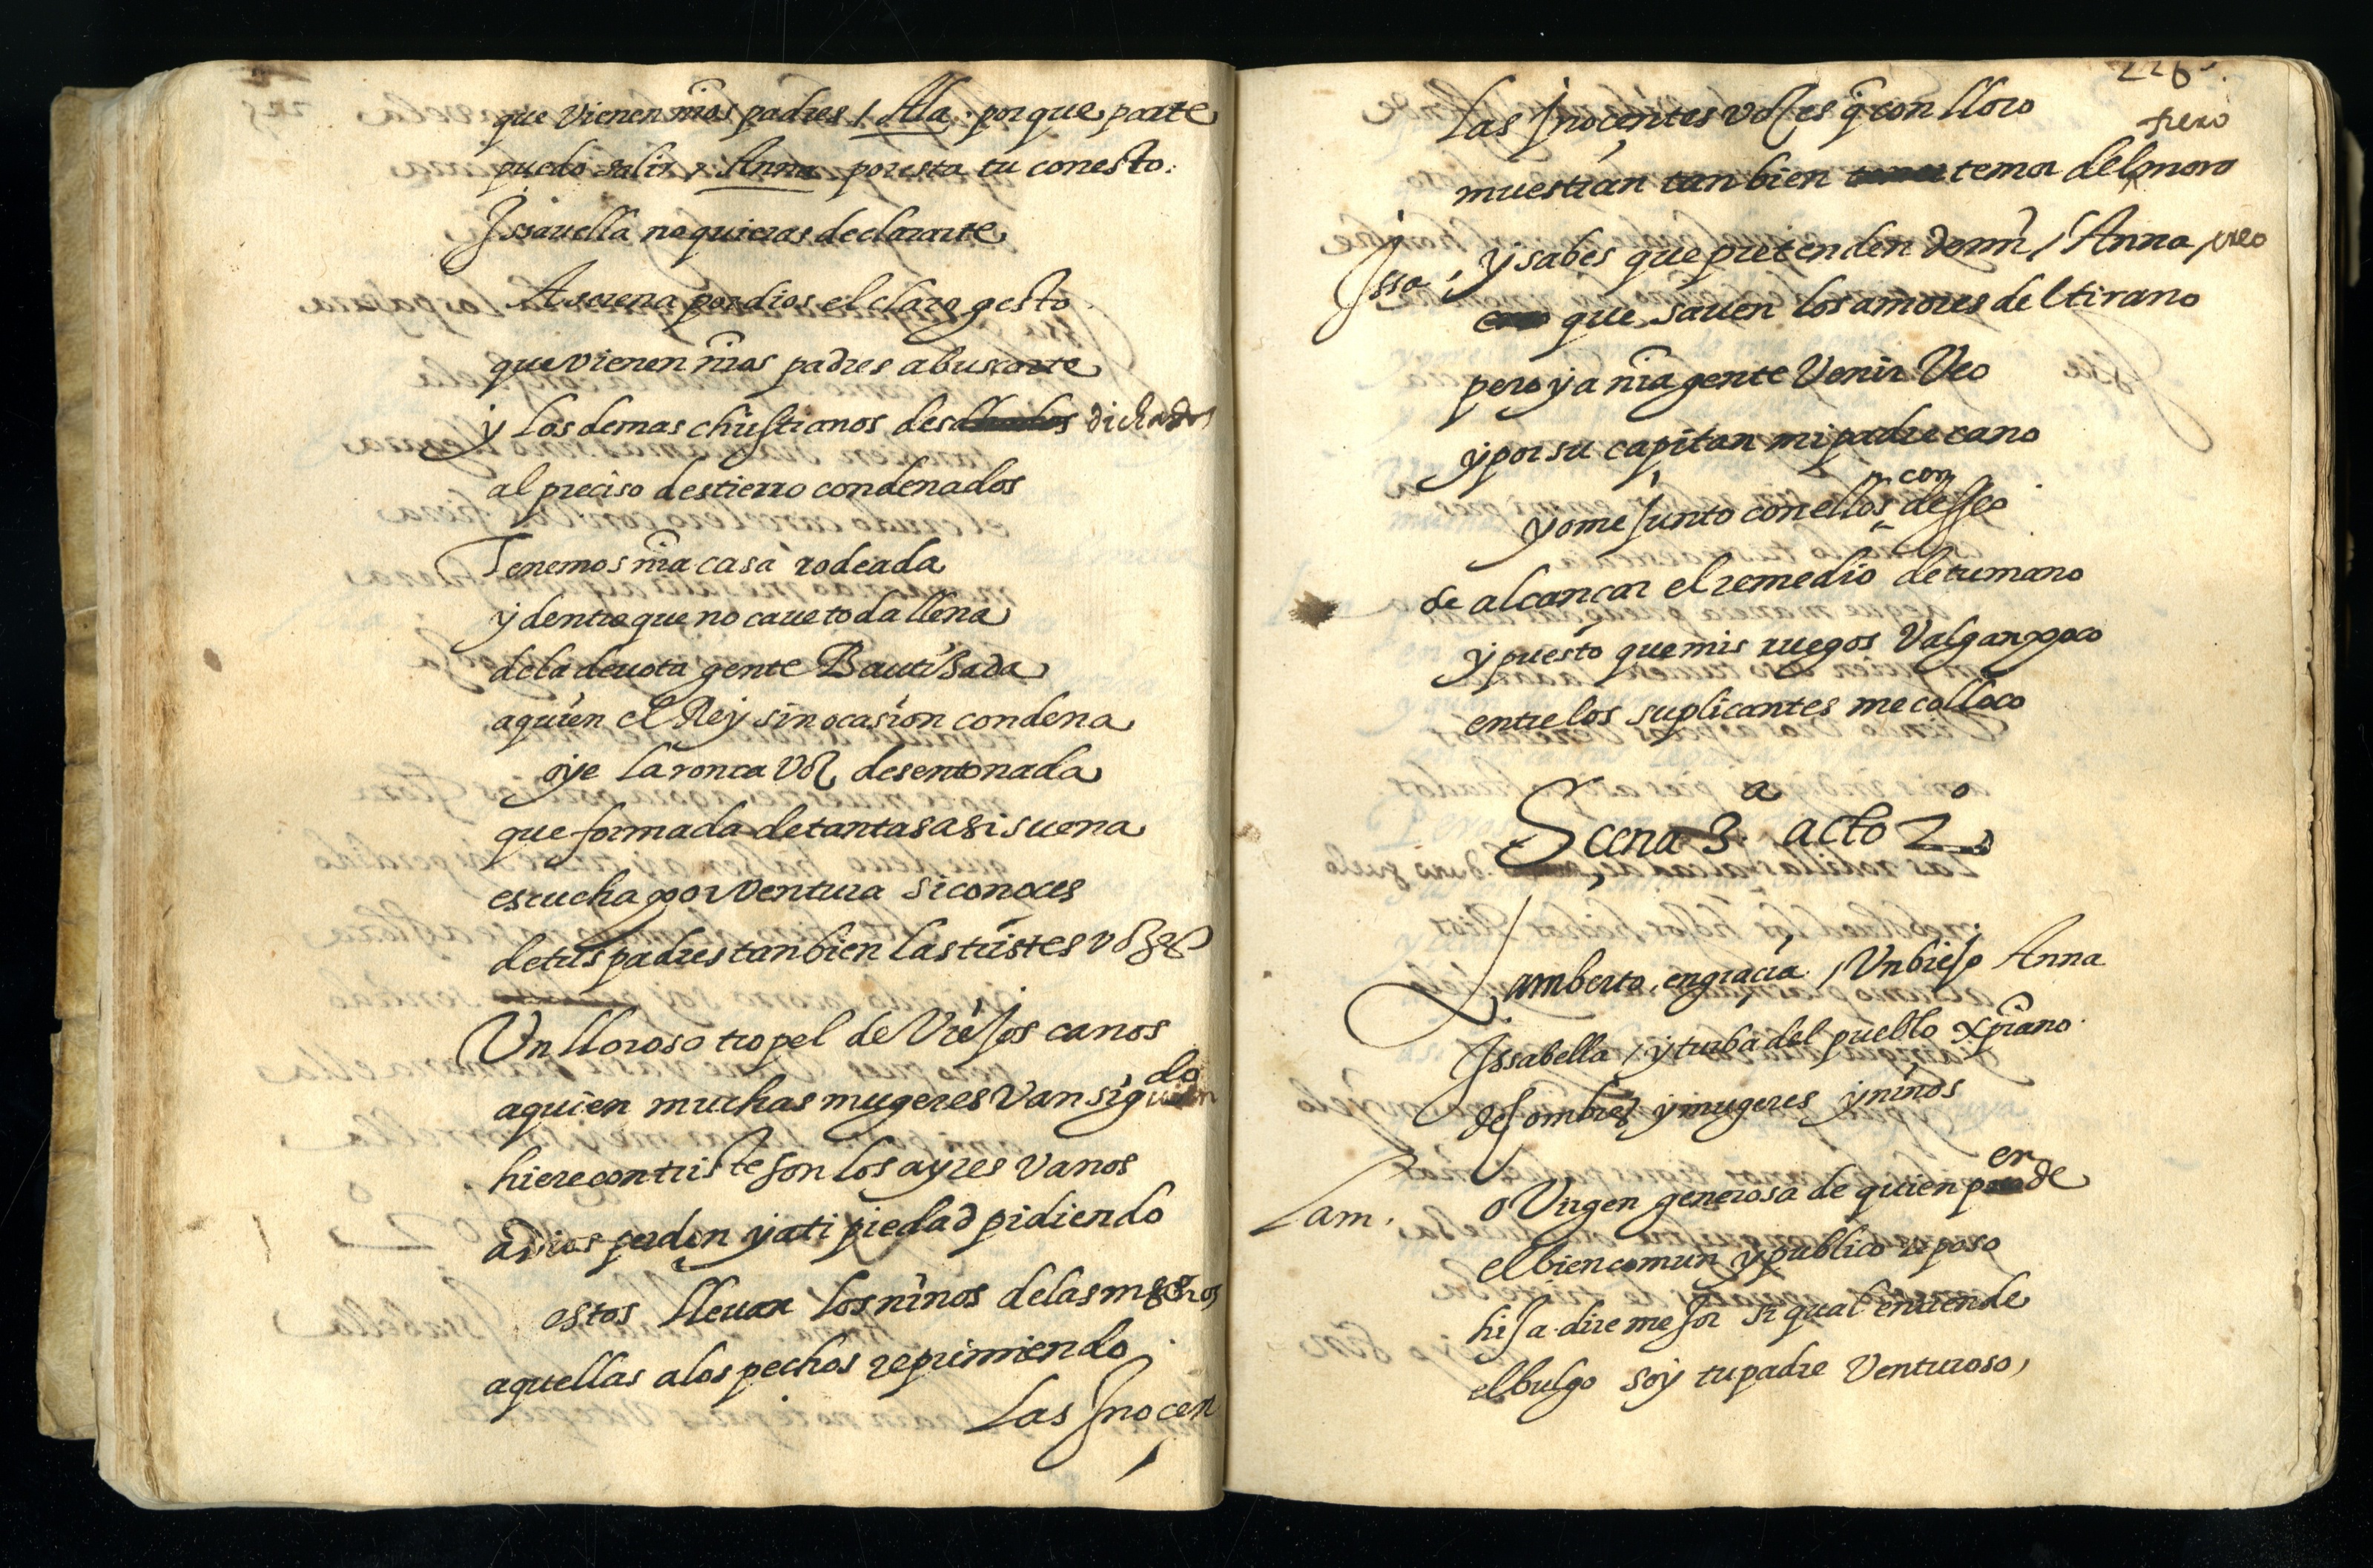 que vienen nr̃os padres / Ala. por que parte
puedo salir / Anna por esta tu con esto.
Issauella no quieras declararte
Aserena por dios el claro gesto
que vienen nr̃os padres a buscarte
y los demas christianos desdichados
al preciso destierro condenados
Tenemos nr̃a casa rodeada
y dentro que no caue toda llena
de la deuota gente Bautisada
a quien el Rey sin ocasion condena
oye la ronca voz desentonada
que formada de tantas asi suena
escucha por ventura si conoces
de tus padres tanbien las tristes vozes
Un lloroso tropel de Viejos canos
aquien muchas mugeres Van siguiendo
hiere con triste son los ayres vanos
a Dios perdon y a ti piedad pidiendo
estos lleuan los ninos de las manos
aquellas a los pechos reprimiendo
Las Jnocen
226
Las Jnoçentes voses q̃ con lloro
muestran tan bien temor del fiero moro
Issa. y sabes que pretenden de mi / Anna creo
que sauen los amores del tirano
pero ya nr̃a gente Venir Veo
y por su capitan mi padre cano
yo me junto con ellos con desseo
de alcançar el remedio de tu mano
y puesto que mis ruegos Valgan poco
entre los suplicantes me colloco
Scena 3.ª acto 2º
Lamberto, engraçia / Un biejo Anna
Issabella / y turba del pueblo xp̃iano.
de hombres y mugeres y niños
Lam. o Virgen generosa de quien pende
el bien comun y publico reposo
hija dire mejor si qual entiende
el bulgo soy tu padre Venturoso,